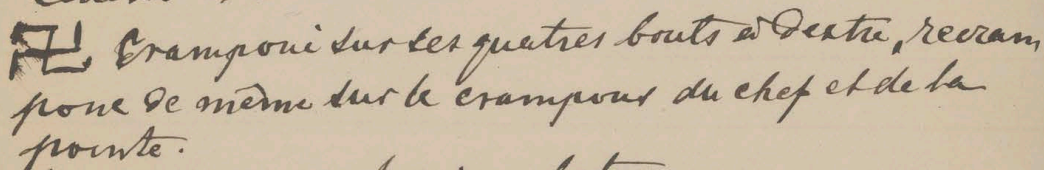 Cramponé sur ses quatres bouts à dextre, recram
poné de même sur le crampons du chef et de la
pointe.